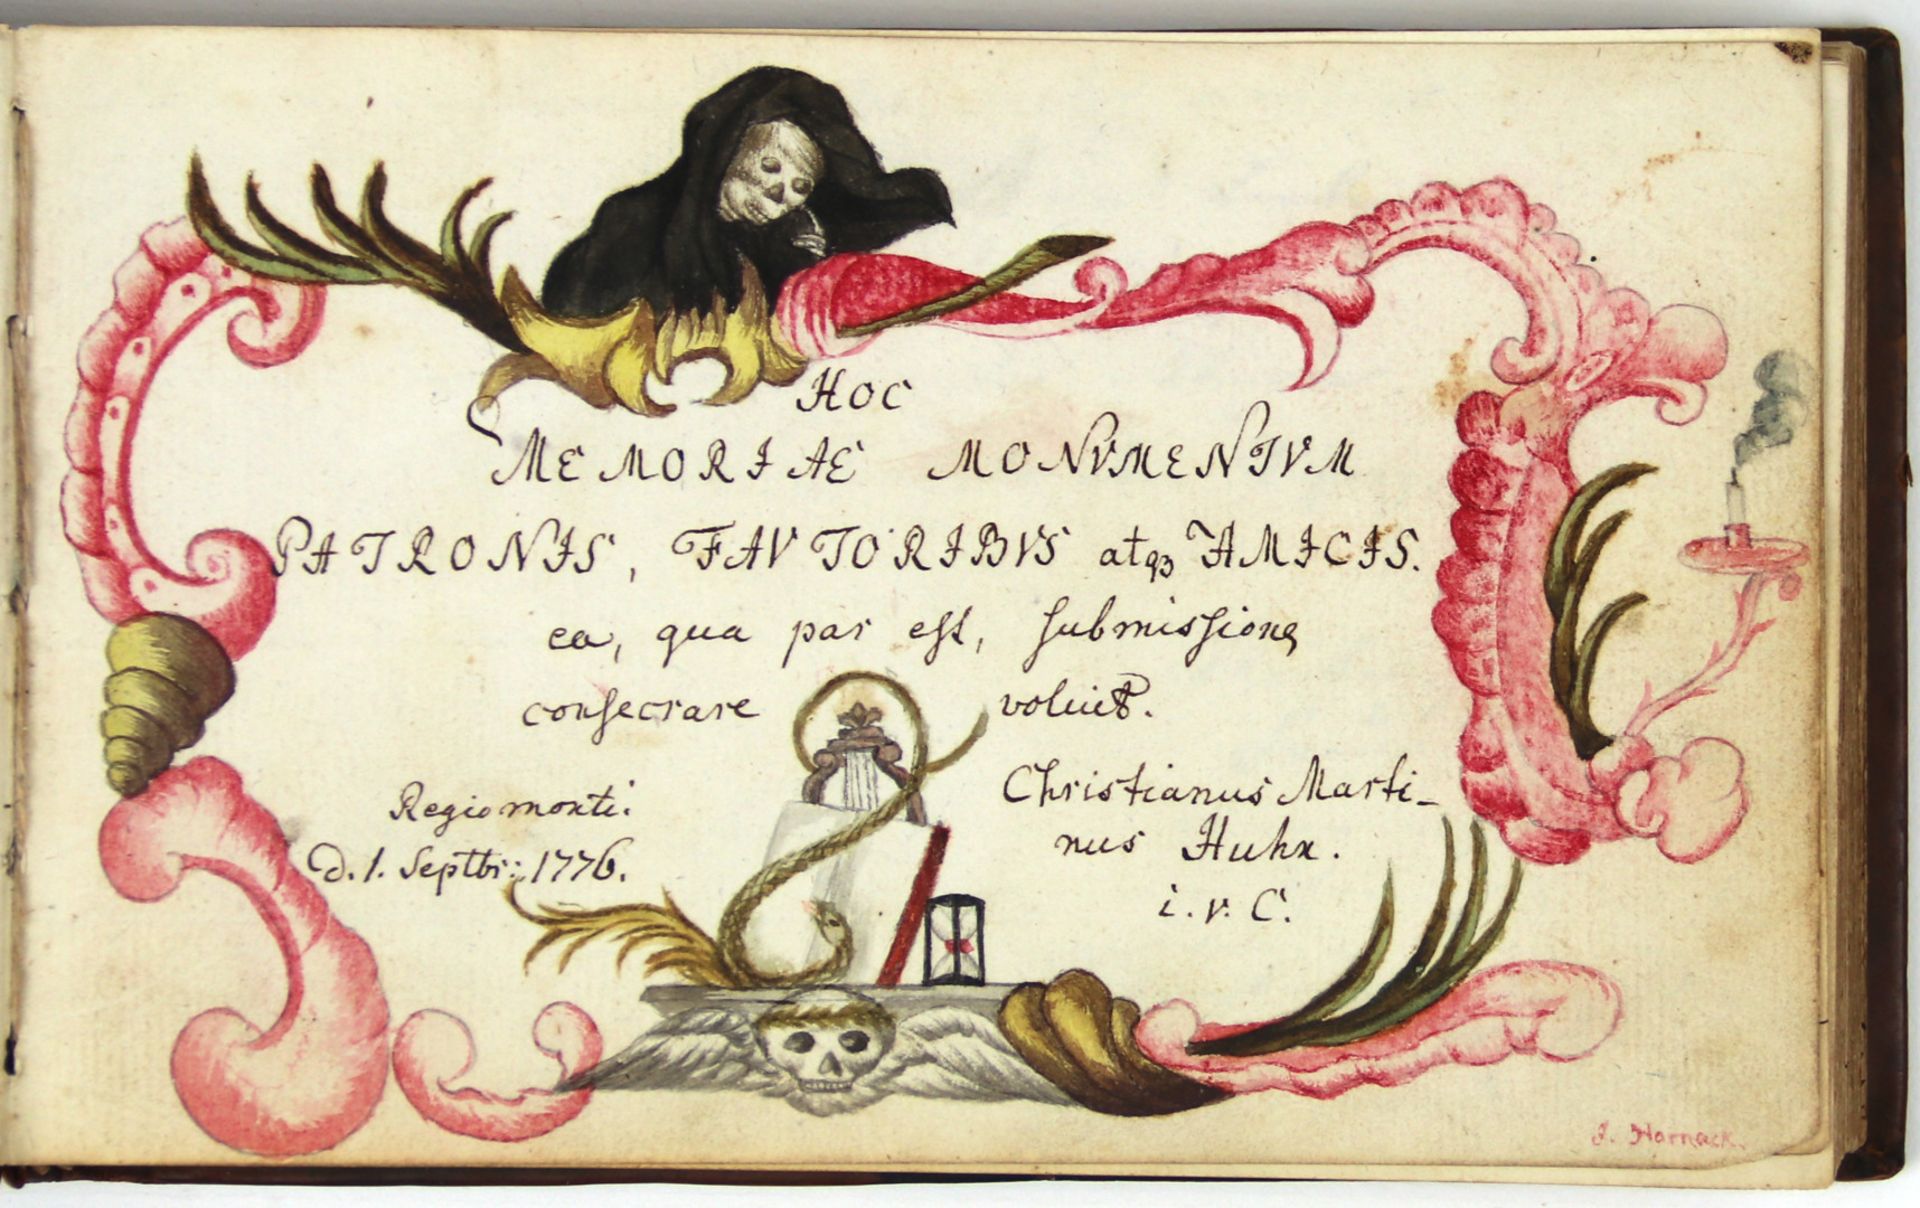 HOC
MEMORIAE MONVMENTVM
PATRONIS, FAVTORIBVS atq3 AMICIS.
ea, qua par est, submissione
consecrare voluit.
Regiomonti.
d. 1. Septbr: 1776.
Christianus Marti-
nus Huhn.
i. v. C.
J. Harnack.